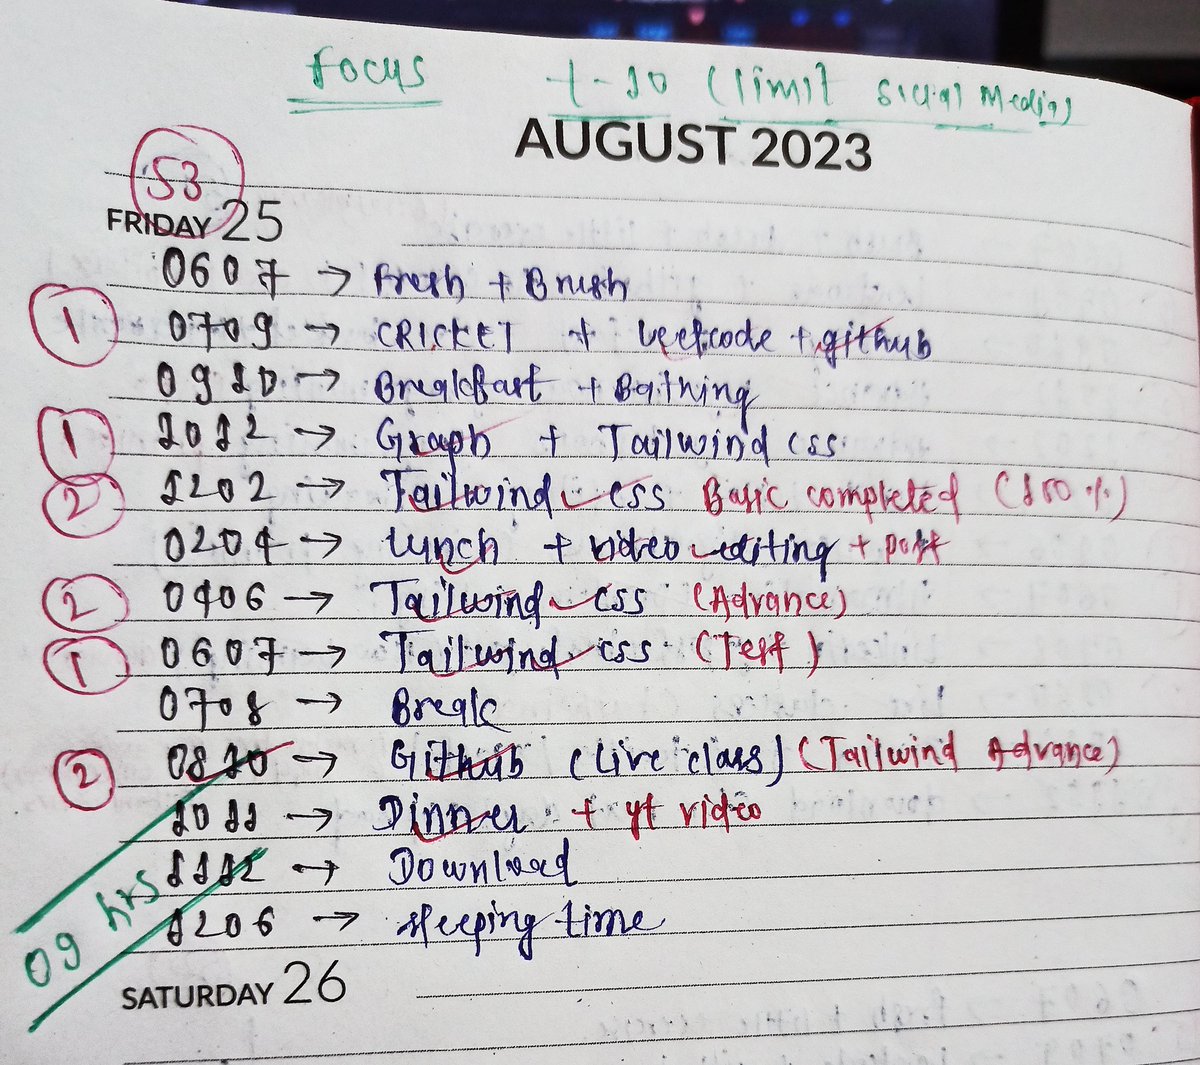 Focus +-10 (limit social Media)
AUGUST 2023
53
FRIDAY 25
0607 → Fresh + Brush
1 0709 → CRICKET + Leetcode + github
0910 → Breakfast + Bathing
1 1012 → Graph + Tailwind css
2 1202 → Tailwind css Basic completed (100%)
0204 → Lunch + video editing + post
2 0406 → Tailwind css (Advance)
1 0607 → Tailwind css (Test)
0708 → Break
2 0810 → Github (Live class) (Tailwind Advance)
1011 → Dinner + yt video
1112 → Download
09 hrs
1206 → sleeping time
SATURDAY 26